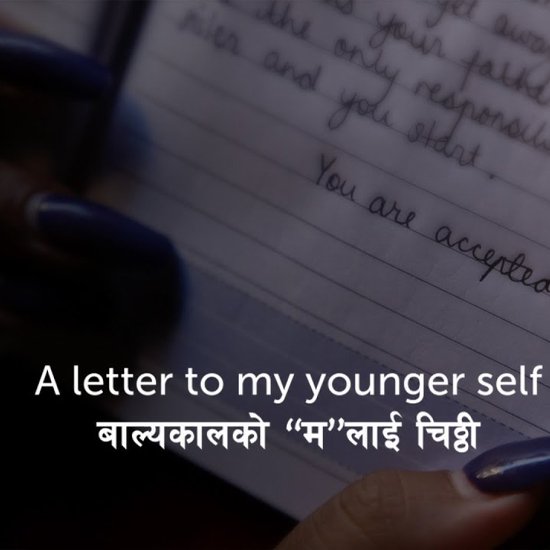 get away
your father
the only responsibi
niles and you start.
You are accepted
A letter to my younger self
बाल्यकालको “म”लाई चिठ्ठी